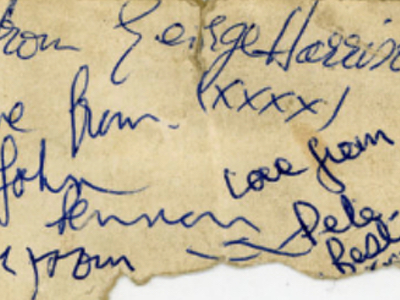 from George Harrison
from (xxxx)
John
love from
Lennon
Pete
from Best